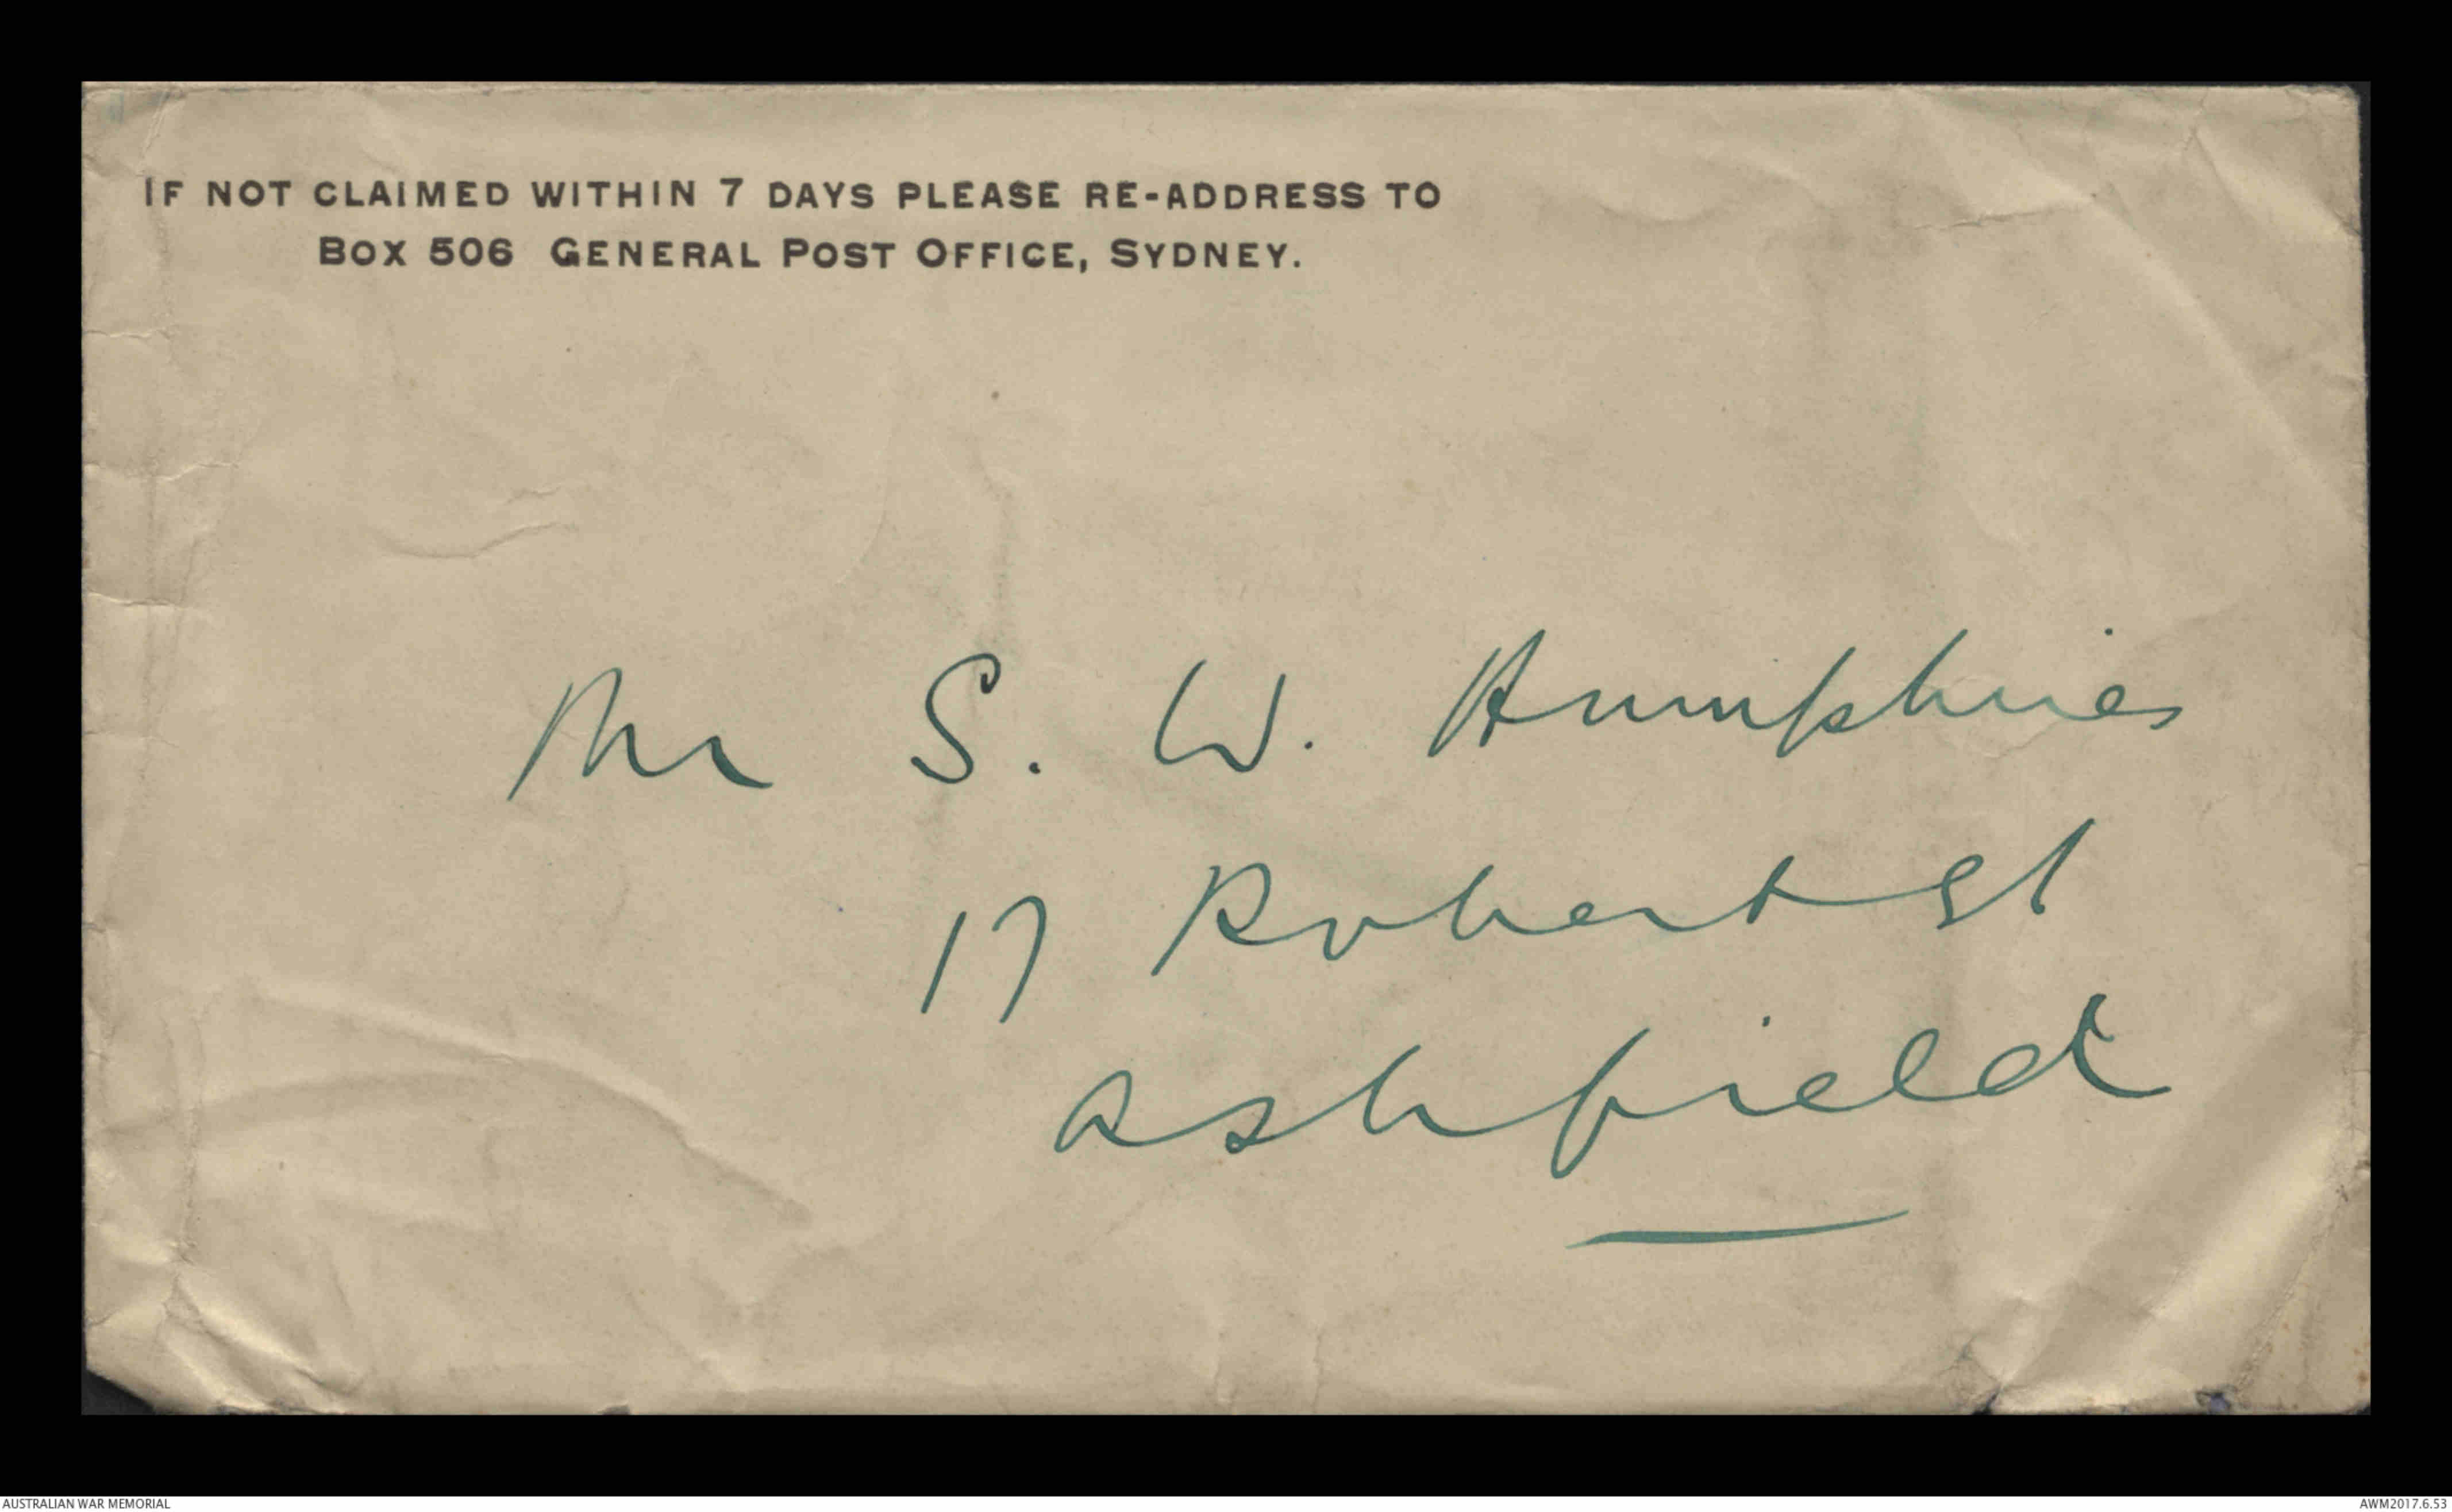 IF NOT CLAIMED WITHIN 7 DAYS PLEASE RE-ADDRESS TO
BOX 506 GENERAL POST OFFICE, SYDNEY.
Mr S. W. Humphries
17 Robert St
Ashfield
AUSTRALIAN WAR MEMORIAL
AWM2017.6.53